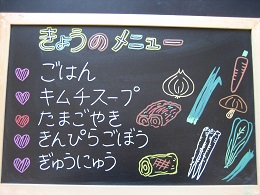 きょうのメニュー
ごはん
キムチスープ
たまごやき
きんぴらごぼう
ぎゅうにゅう